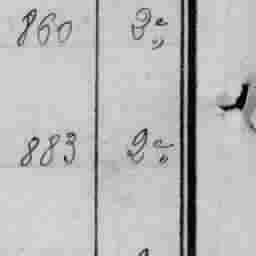 860 2e
883 2e